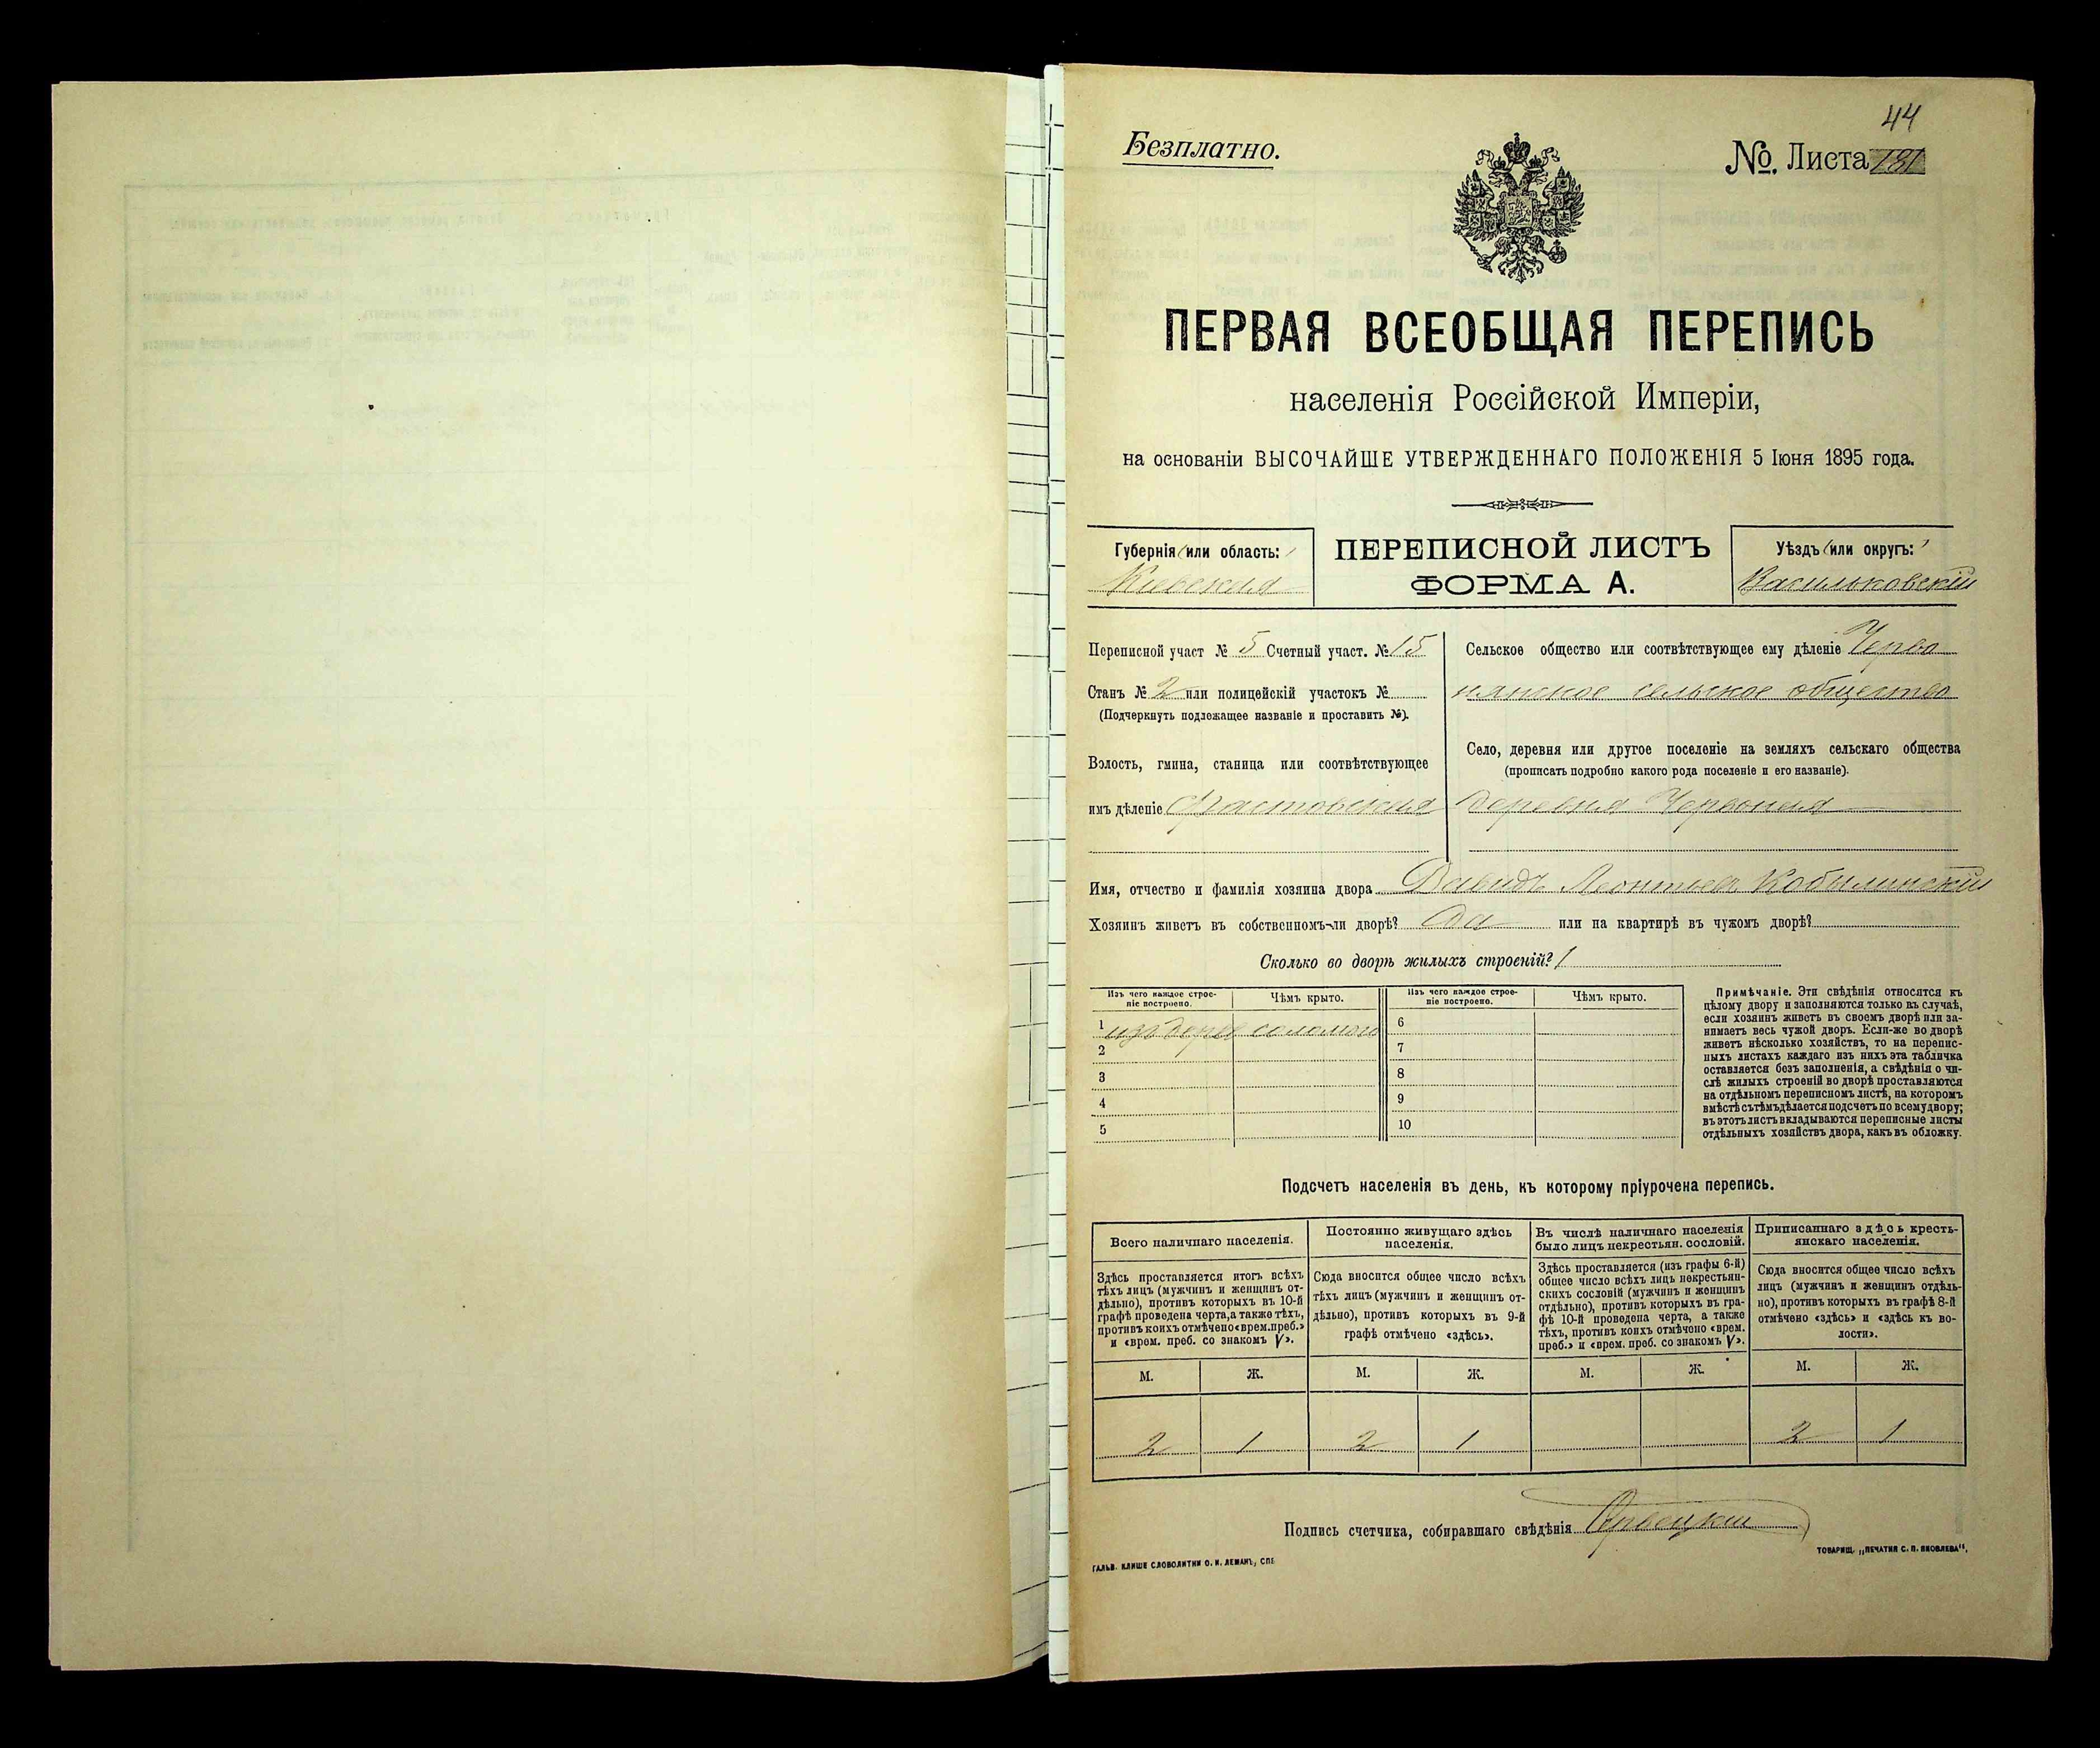 44
Безплатно.
№. Листа 181
ПЕРВАЯ ВСЕОБЩАЯ ПЕРЕПИСЬ
населенія Россійской Имперіи,
на основаніи ВЫСОЧАЙШЕ УТВЕРЖДЕННАГО ПОЛОЖЕНІЯ 5 Іюня 1895 года.
Губернія (или область:)
Кіевская
ПЕРЕПИСНОЙ ЛИСТЪ
ФОРМА А.
Уѣздъ (или округъ:)
Васильковскій
Переписной участ № 5 Счетный участ. № 15
Станъ № 2 или полицейскій участокъ №
(Подчеркнуть подлежащее названіе и проставить №).
Волость, гмина, станица или соотвѣтствующее
имъ дѣленіе Фастовская
Сельское общество или соотвѣтствующее ему дѣленіе Черво
нянское сельское общество
Село, деревня или другое поселеніе на земляхъ сельскаго общества
(прописать подробно какого рода поселеніе и его названіе).
деревня Червоная
Имя, отчество и фамилія хозяина двора Давидъ Леонтьев Кобылинскій
Хозяинъ живетъ въ собственномъ-ли дворѣ? Да или на квартирѣ въ чужомъ дворѣ?
Сколько во дворѣ жилыхъ строеній? 1
Изъ чего каждое строе-
ніе построено.
Чѣмъ крыто.
Изъ чего каждое строе-
ніе построено.
Чѣмъ крыто.
1 изъ дерев соломою
2
3
4
5
6
7
8
9
10
Примѣчаніе. Эти свѣдѣнія относятся къ
цѣлому двору и заполняются только въ случаѣ,
если хозяинъ живетъ въ своемъ дворѣ или за-
нимаетъ весь чужой дворъ. Если-же во дворѣ
живетъ нѣсколько хозяйствъ, то на перепис-
ныхъ листахъ каждаго изъ нихъ эта табличка
оставляется безъ заполненія, а свѣдѣнія о чи-
слѣ жилыхъ строеній во дворѣ проставляются
на отдѣльномъ переписномъ листѣ, на которомъ
вмѣстѣ съ тѣмъ дѣлается подсчетъ по всему двору;
въ этотъ листъ вкладываются переписные листы
отдѣльныхъ хозяйствъ двора, какъ въ обложку.
Подсчетъ населенія въ день, къ которому пріурочена перепись.
Всего наличнаго населенія.
Здѣсь проставляется итогъ всѣхъ
тѣхъ лицъ (мужчинъ и женщинъ от-
дѣльно), противъ которыхъ въ 10-й
графѣ проведена черта, а также тѣхъ,
противъ коихъ отмѣчено «врем. преб.»
и «врем. преб. со знакомъ V».
М. Ж.
2 1
Постоянно живущаго здѣсь
населенія.
Сюда вносится общее число всѣхъ
тѣхъ лицъ (мужчинъ и женщинъ от-
дѣльно), противъ которыхъ въ 9-й
графѣ отмѣчено «здѣсь».
М. Ж.
2 1
Въ числѣ наличнаго населенія
было лицъ некрестьян. сословій.
Здѣсь проставляется (изъ графы 6-й)
общее число всѣхъ лицъ некрестьян-
скихъ сословій (мужчинъ и женщинъ
отдѣльно), противъ которыхъ въ гра-
фѣ 10-й проведена черта, а также
тѣхъ, противъ коихъ отмѣчено «врем.
преб.» и «врем. преб. со знакомъ V».
М. Ж.
Приписаннаго здѣсь кресть-
янскаго населенія.
Сюда вносится общее число всѣхъ
лицъ (мужчинъ и женщинъ отдѣль-
но), противъ которыхъ въ графѣ 8-й
отмѣчено «здѣсь» и «здѣсь къ во-
лости».
М. Ж.
2 1
Подпись счетчика, собиравшаго свѣдѣнія
ГАЛЬВ. КЛИШЕ СЛОВОЛИТНИ О. И. ЛЕМАНЪ, СПБ
ТОВАРИЩ. „ПЕЧАТНЯ С. П. ЯКОВЛЕВА“.